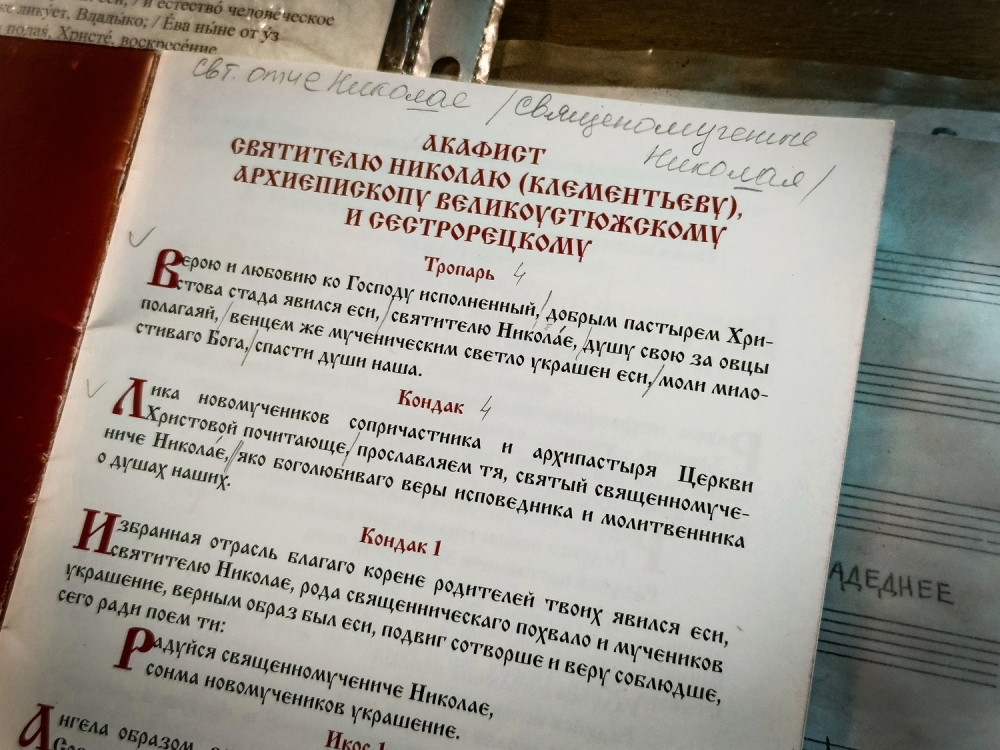 и естество́ челове́ческое
лику́ет, Влады́ко; / Е́ва ны́не от у́з
Христе́, воскресе́ние
свт. отче Николае / священомучениче
Николая /
АКАФИСТ
СВЯТИТЕЛЮ НИКОЛАЮ (КЛЕМЕНТЬЕВУ),
АРХИЕПИСКОПУ ВЕЛИКОУСТЮЖСКОМУ
И СЕСТРОРЕЦКОМУ
Тропарь 4
Верою и любовию ко Господу исполненный, / добрым пастырем Хри-
стова стада явился еси, / святителю Никола́е, / душу свою за овцы
полагаяй, / венцем же мученическим светло украшен еси, / моли мило-
стиваго Бога, / спасти души наша.
Кондак 4
Лика новомучеников сопричастника и архипастыря Церкви
Христовой почитающе, / прославляем тя, святый священномуче-
ниче Никола́е, // яко боголюбиваго веры исповедника и молитвенника
о душах наших.
Кондак 1
Избранная отрасль благаго корене родителей твоих явился еси,
святителю Николае, рода священническаго похвало и мучеников
украшение, верным образ был еси, подвиг сотворше и веру соблюдше,
сего ради поем ти:
Радуйся священномучениче Николае,
сонма новомучеников украшение.
Икос 1
Ангела образом
АДЕДНЕЕ